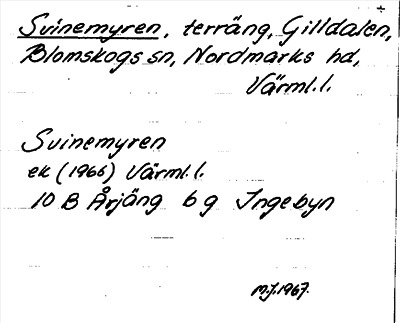 Svinemyren, terräng, Gilldalen,
Blomskogs sn, Nordmarks hd,
Värml.l.
Svinemyren
ek (1966) Värml.l.
10 B Årjäng 6 g Ingebyn
M.J.1967.